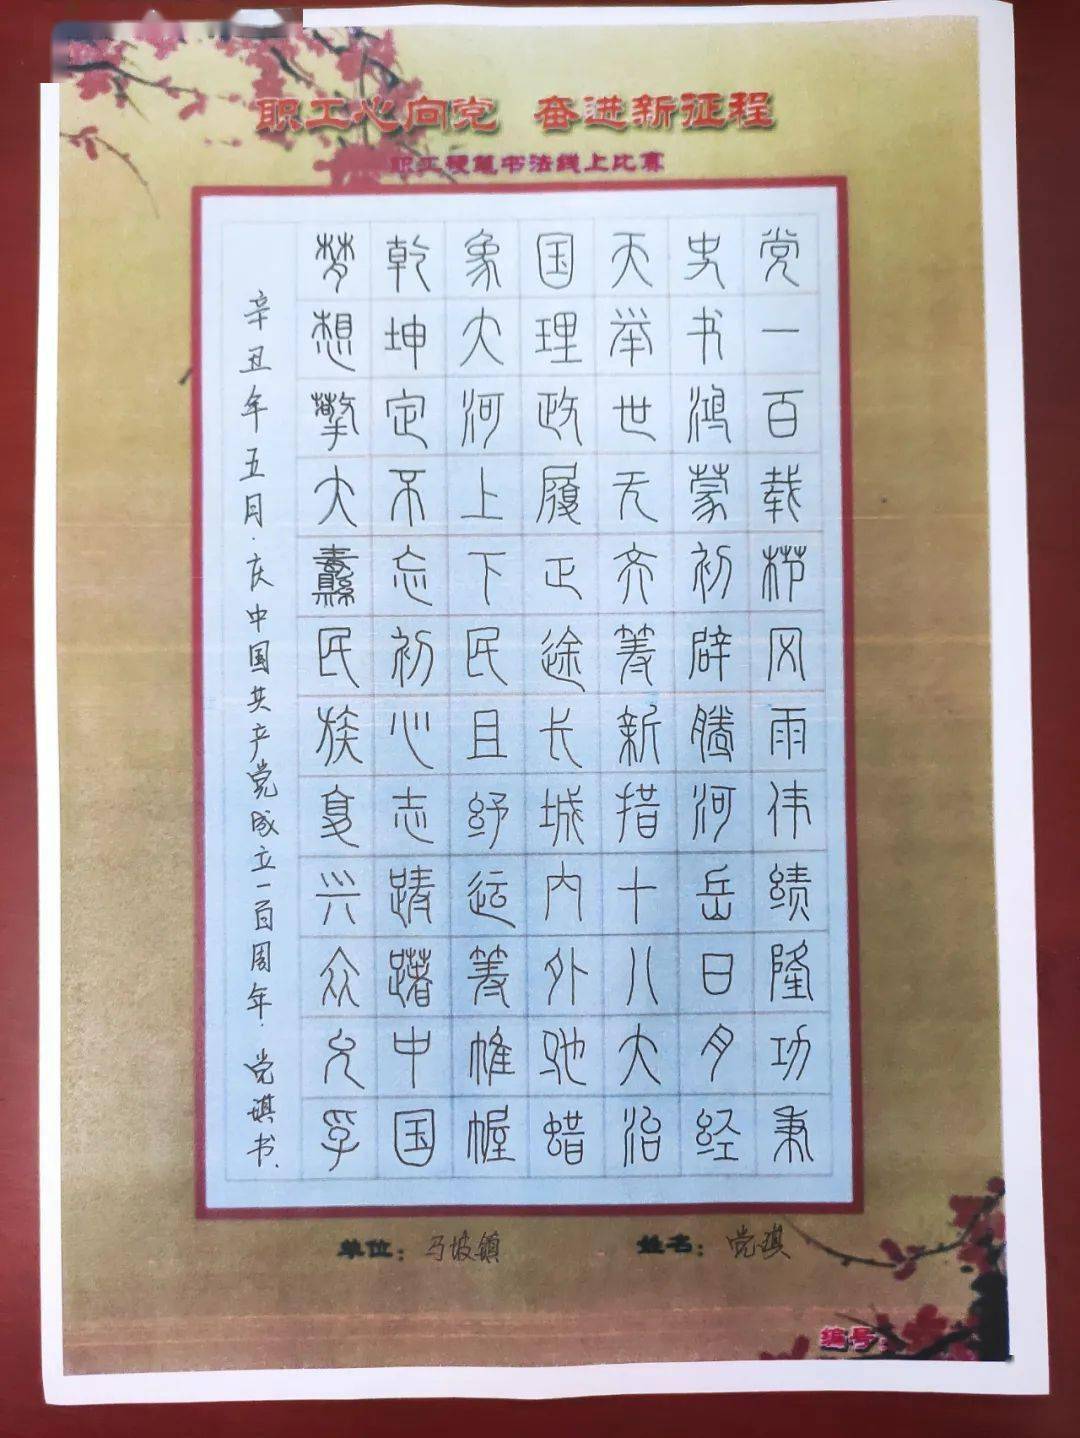 职工心向党 奋进新征程
职工硬笔书法线上比赛
党一百载栉风雨伟绩隆功秉
史书鸿蒙初辟腾河岳日夕经
天举世无齐筹新措十八大治
国理政履正途长城内外驰蜡
象大河上下民且纾运筹帷幄
乾坤定不忘初心志踌躇中国
梦想擎大纛民族复兴众允孚
辛丑年五月.庆中国共产党成立一百周年.党琪书.
单位：马坡镇 姓名：党琪
编号：